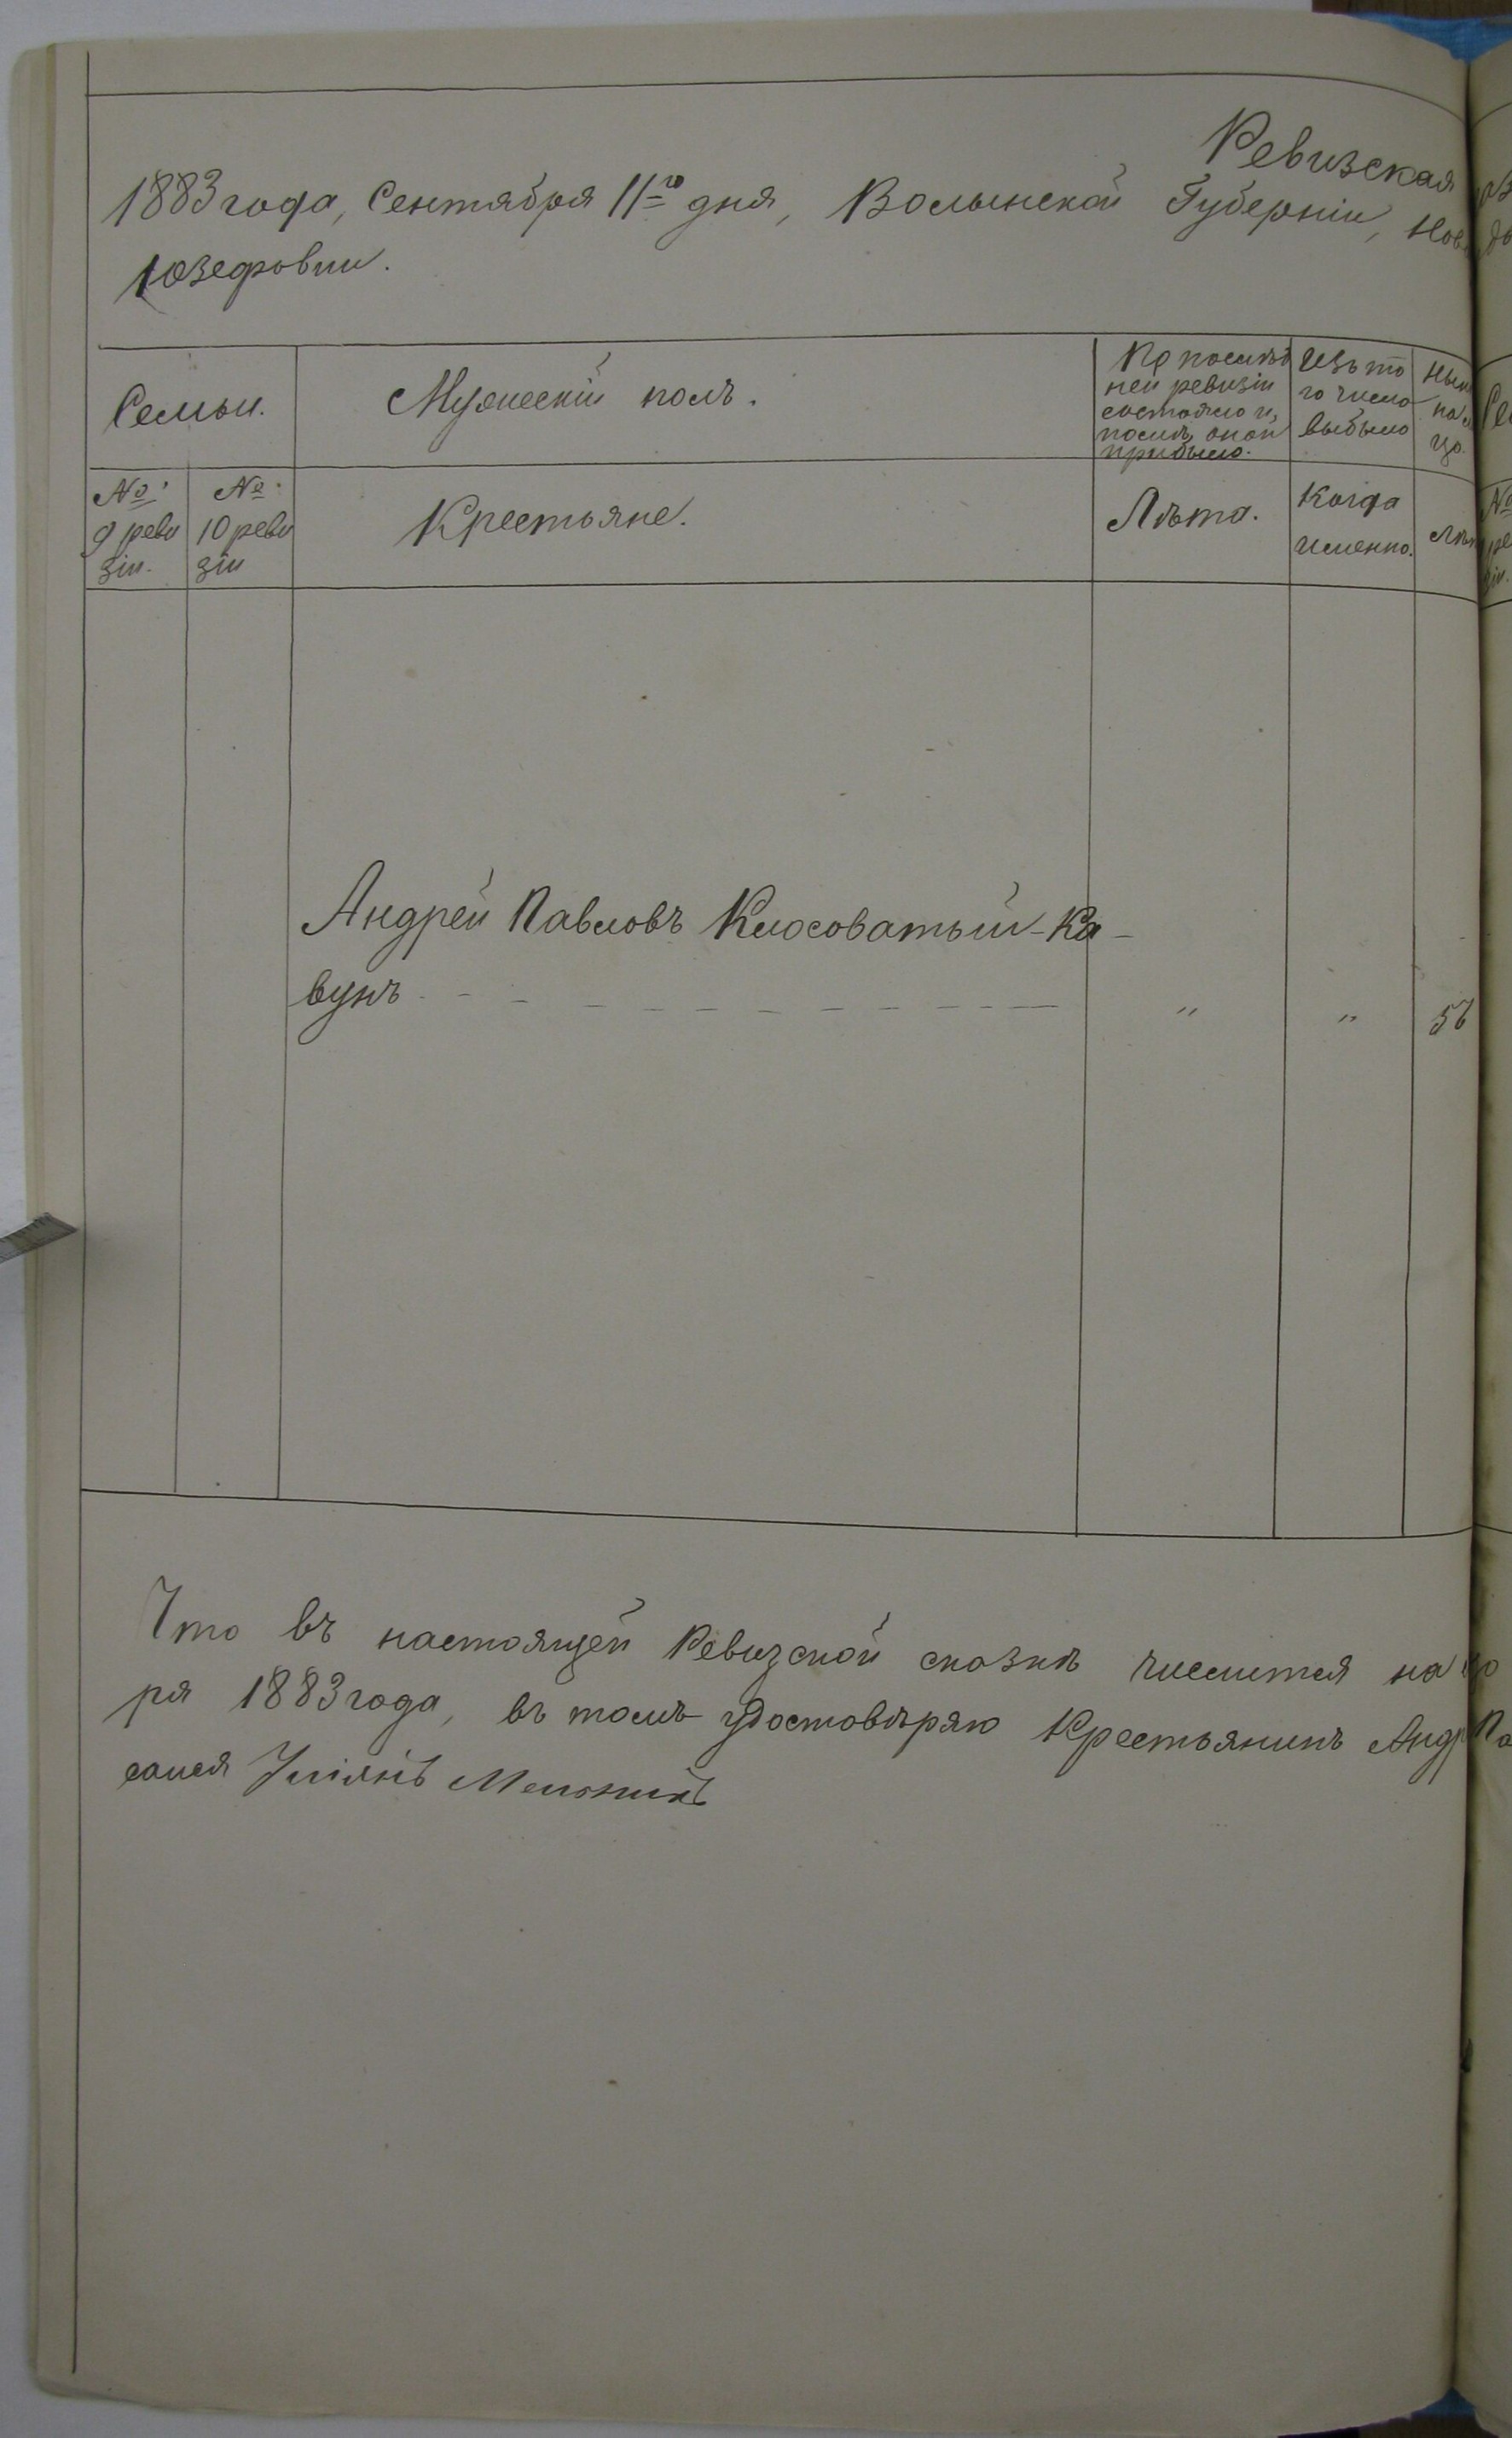 Ревизская
1883 года, Сентября 11го дня, Волынской Губерніи, Нов
Юзефовки.
Семьи.
Мужескій полъ.
По послѣд
ней ревизіи
состояло и,
послѣ оной
прибыло.
Изъ то
го числа
выбыло
Нын
на л
цо.
№
9 реви
зіи.
№
10 реви
зіи
Крестьяне.
Лѣта.
Когда
именно.
Лѣт
Андрей Павловъ Клюсоватый-Ка-
вунъ - - - - - - - - - - - " "
Что въ настоящей Ревизской сказкѣ числится на
ря 1883 года, въ томъ удостовѣряю Крестьянинъ Андр
сался Уліянъ Мельникъ